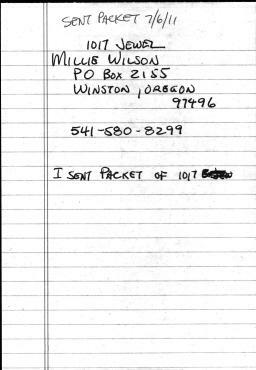 SENT PACKET 7/6/11
1017 JEWEL
MILLIE WILSON
PO BOX 2155
WINSTON, OREGON
97496
541-580-8299
I SENT PACKET OF 1017